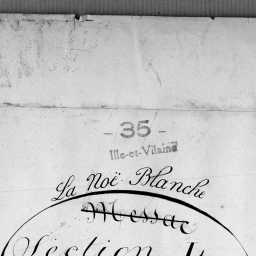 - 35 -
Ille-et-Vilaine
La Noë-Blanche
Messac
Section